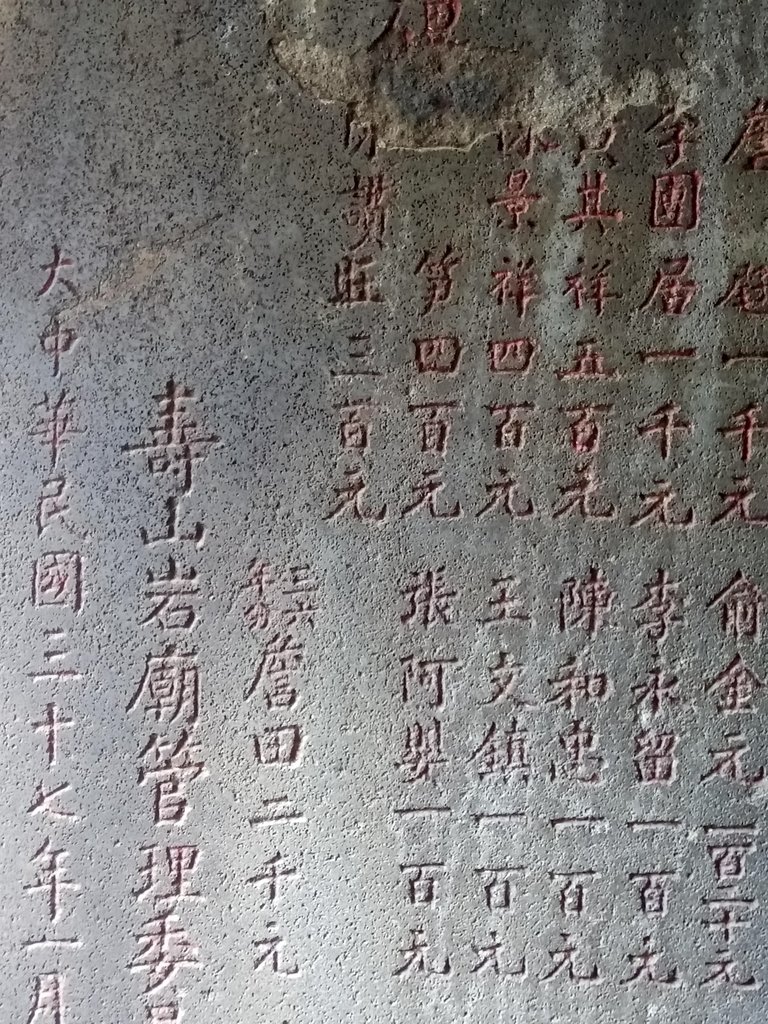 詹 趖一千元
俞金元一百二十元
李團居一千元
李永留一百元
黃其祥五百元
陳和忠一百元
景祥四百元
王文鎮一百元
第四百元
張阿嬰一百元
讚旺三百元
三六年分詹田二千元
壽山岩廟管理委員
大中華民國三十七年一月